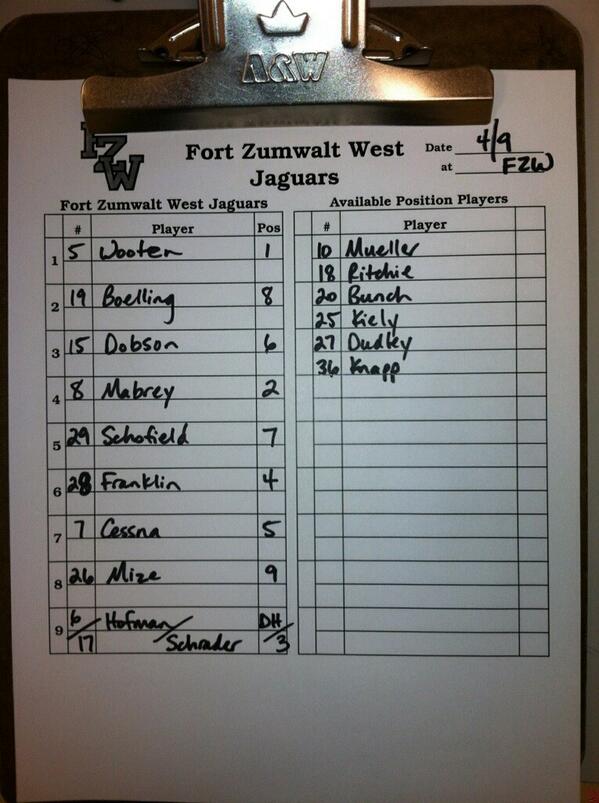 A&W
FZW
Fort Zumwalt West
Jaguars
Date 4/9
at FZW
Fort Zumwalt West Jaguars
# Player Pos
1 5 Wooten 1
2 19 Boelling 8
3 15 Dobson 6
4 8 Mabrey 2
5 29 Schofield 7
6 28 Franklin 4
7 7 Cessna 5
8 26 Mize 9
9 6/17 Hofman/Schrader DH/3
Available Position Players
# Player
10 Mueller
18 Ritchie
20 Bunch
25 Kiely
27 Dudley
36 Knapp